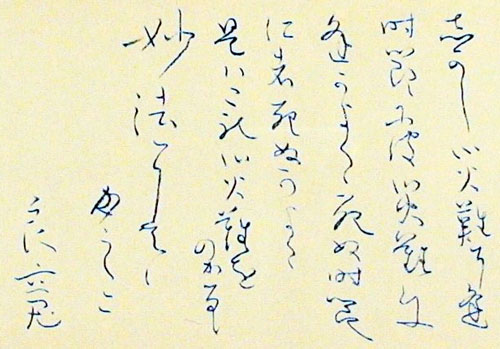 志かし災難に逢
時節には災難に
逢かよく候死ぬ時節
に者死ぬかよく候
是ハこれ災難を
のかるゝ
妙法にて候
かしこ